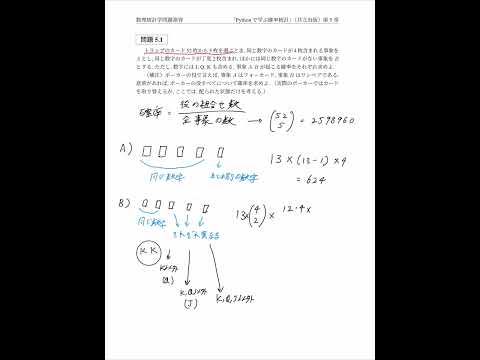 数理統計学問題演習 「Python で学ぶ確率統計」（共立出版）第 5 章
問題 5.1
トランプのカード 52 枚から 5 枚を選ぶとき，同じ数字のカードが 4 枚含まれる事象を
A とし，同じ数字のカードが丁度 2 枚含まれ，ほかには同じ数字のカードがない事象を B
とする．ただし，数字には J, Q, K も含める．事象 A, B が起こる確率をそれぞれ求めよ．
（補注）ポーカーの役で言えば，事象 A はフォーカード，事象 B はワンペアである．
意欲があれば，ポーカーの役すべてについて確率を求めよ．（実際のポーカーではカード
を取り替えるが，ここでは，配られた状態だけを考える．）
確率 = 役の組合せ数 / 全事象の数 → (52 5) = 2598960
A)
同じ数字
13 × (13-1) × 4
= 624
B)
同じ数字
それぞれ異なる
13 × (4 2) × 12・4 ×
K K
K以外
(Q)
K,Q以外
(J)
K,Q,J以外